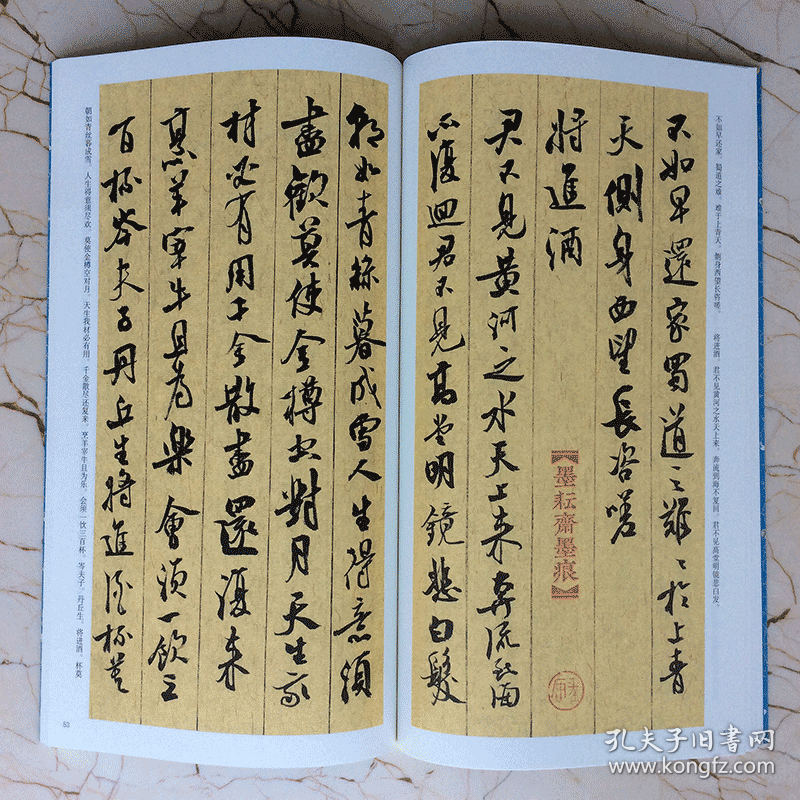 不如早还家。蜀道之难，难于上青天，侧身西望长咨嗟。 将进酒。君不见黄河之水天上来，奔流到海不复回。君不见高堂明镜悲白发，
不如早還家蜀道之難〻於上青
天側身西望長咨嗟
將進酒
君不見黃河之水天上來奔流到海
不復迴君不見高堂明鏡悲白髮
【墨耘齋墨痕】
朝如青絲暮成雪人生得意須
盡歡莫使金樽空對月天生我
材必有用千金散盡還復來
烹羊宰牛且為樂會須一飲三
百杯岑夫子丹丘生將進酒杯莫
朝如青丝暮成雪。人生得意须尽欢，莫使金樽空对月。天生我材必有用，千金散尽还复来。烹羊宰牛且为乐，会须一饮三百杯。岑夫子，丹丘生，将进酒，杯莫
50
孔夫子旧书网
www.kongfz.com